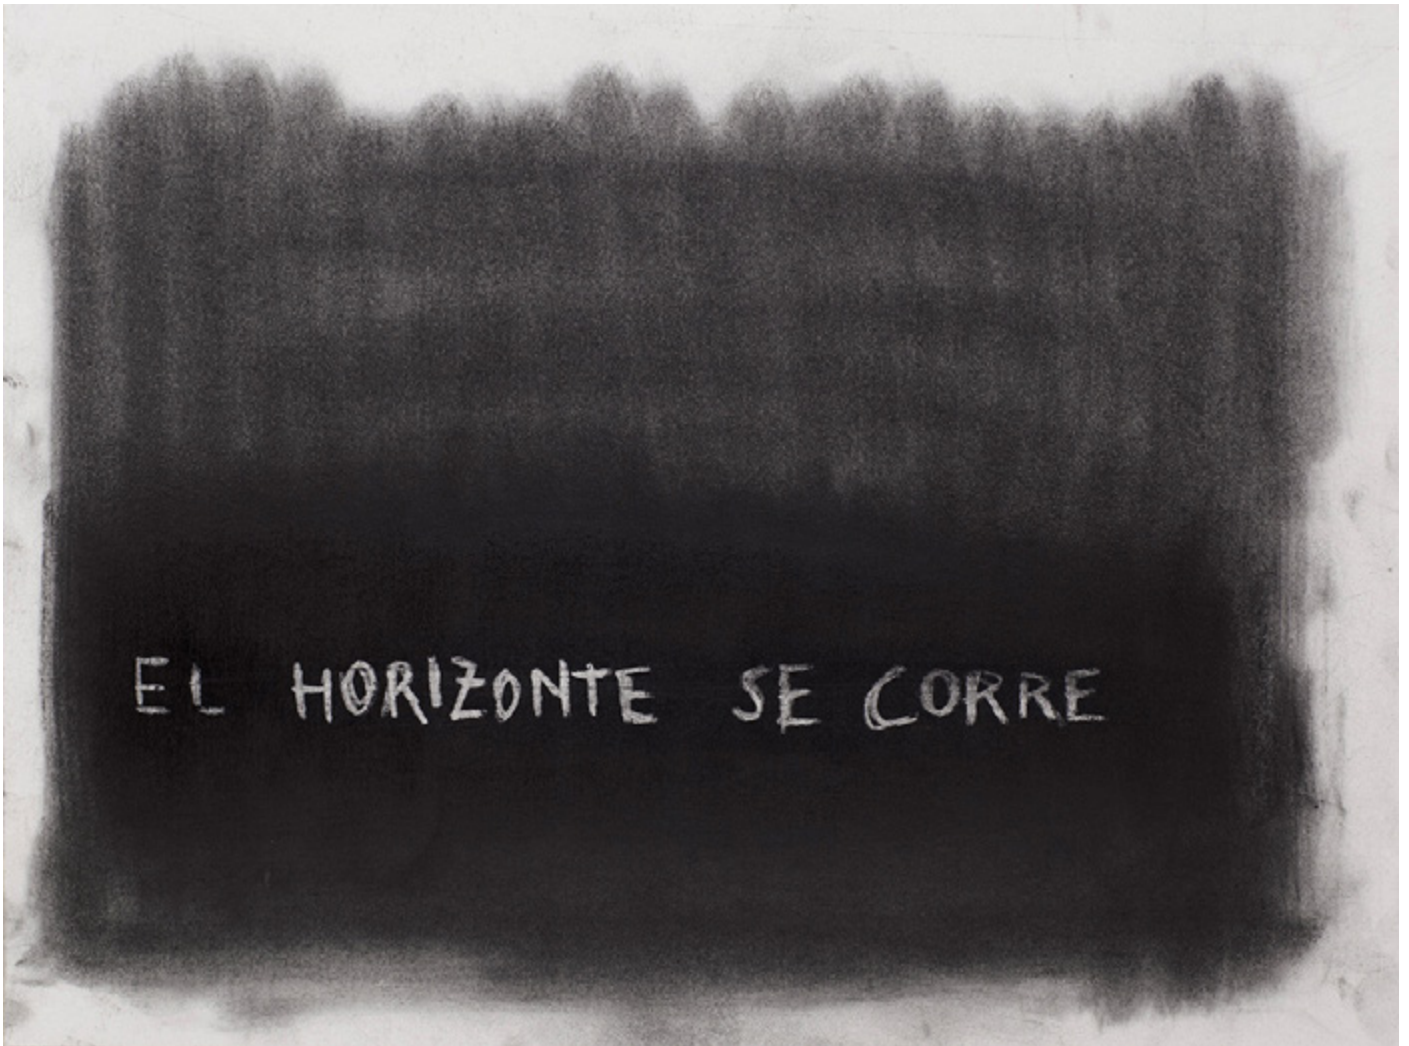 EL HORIZONTE SE CORRE